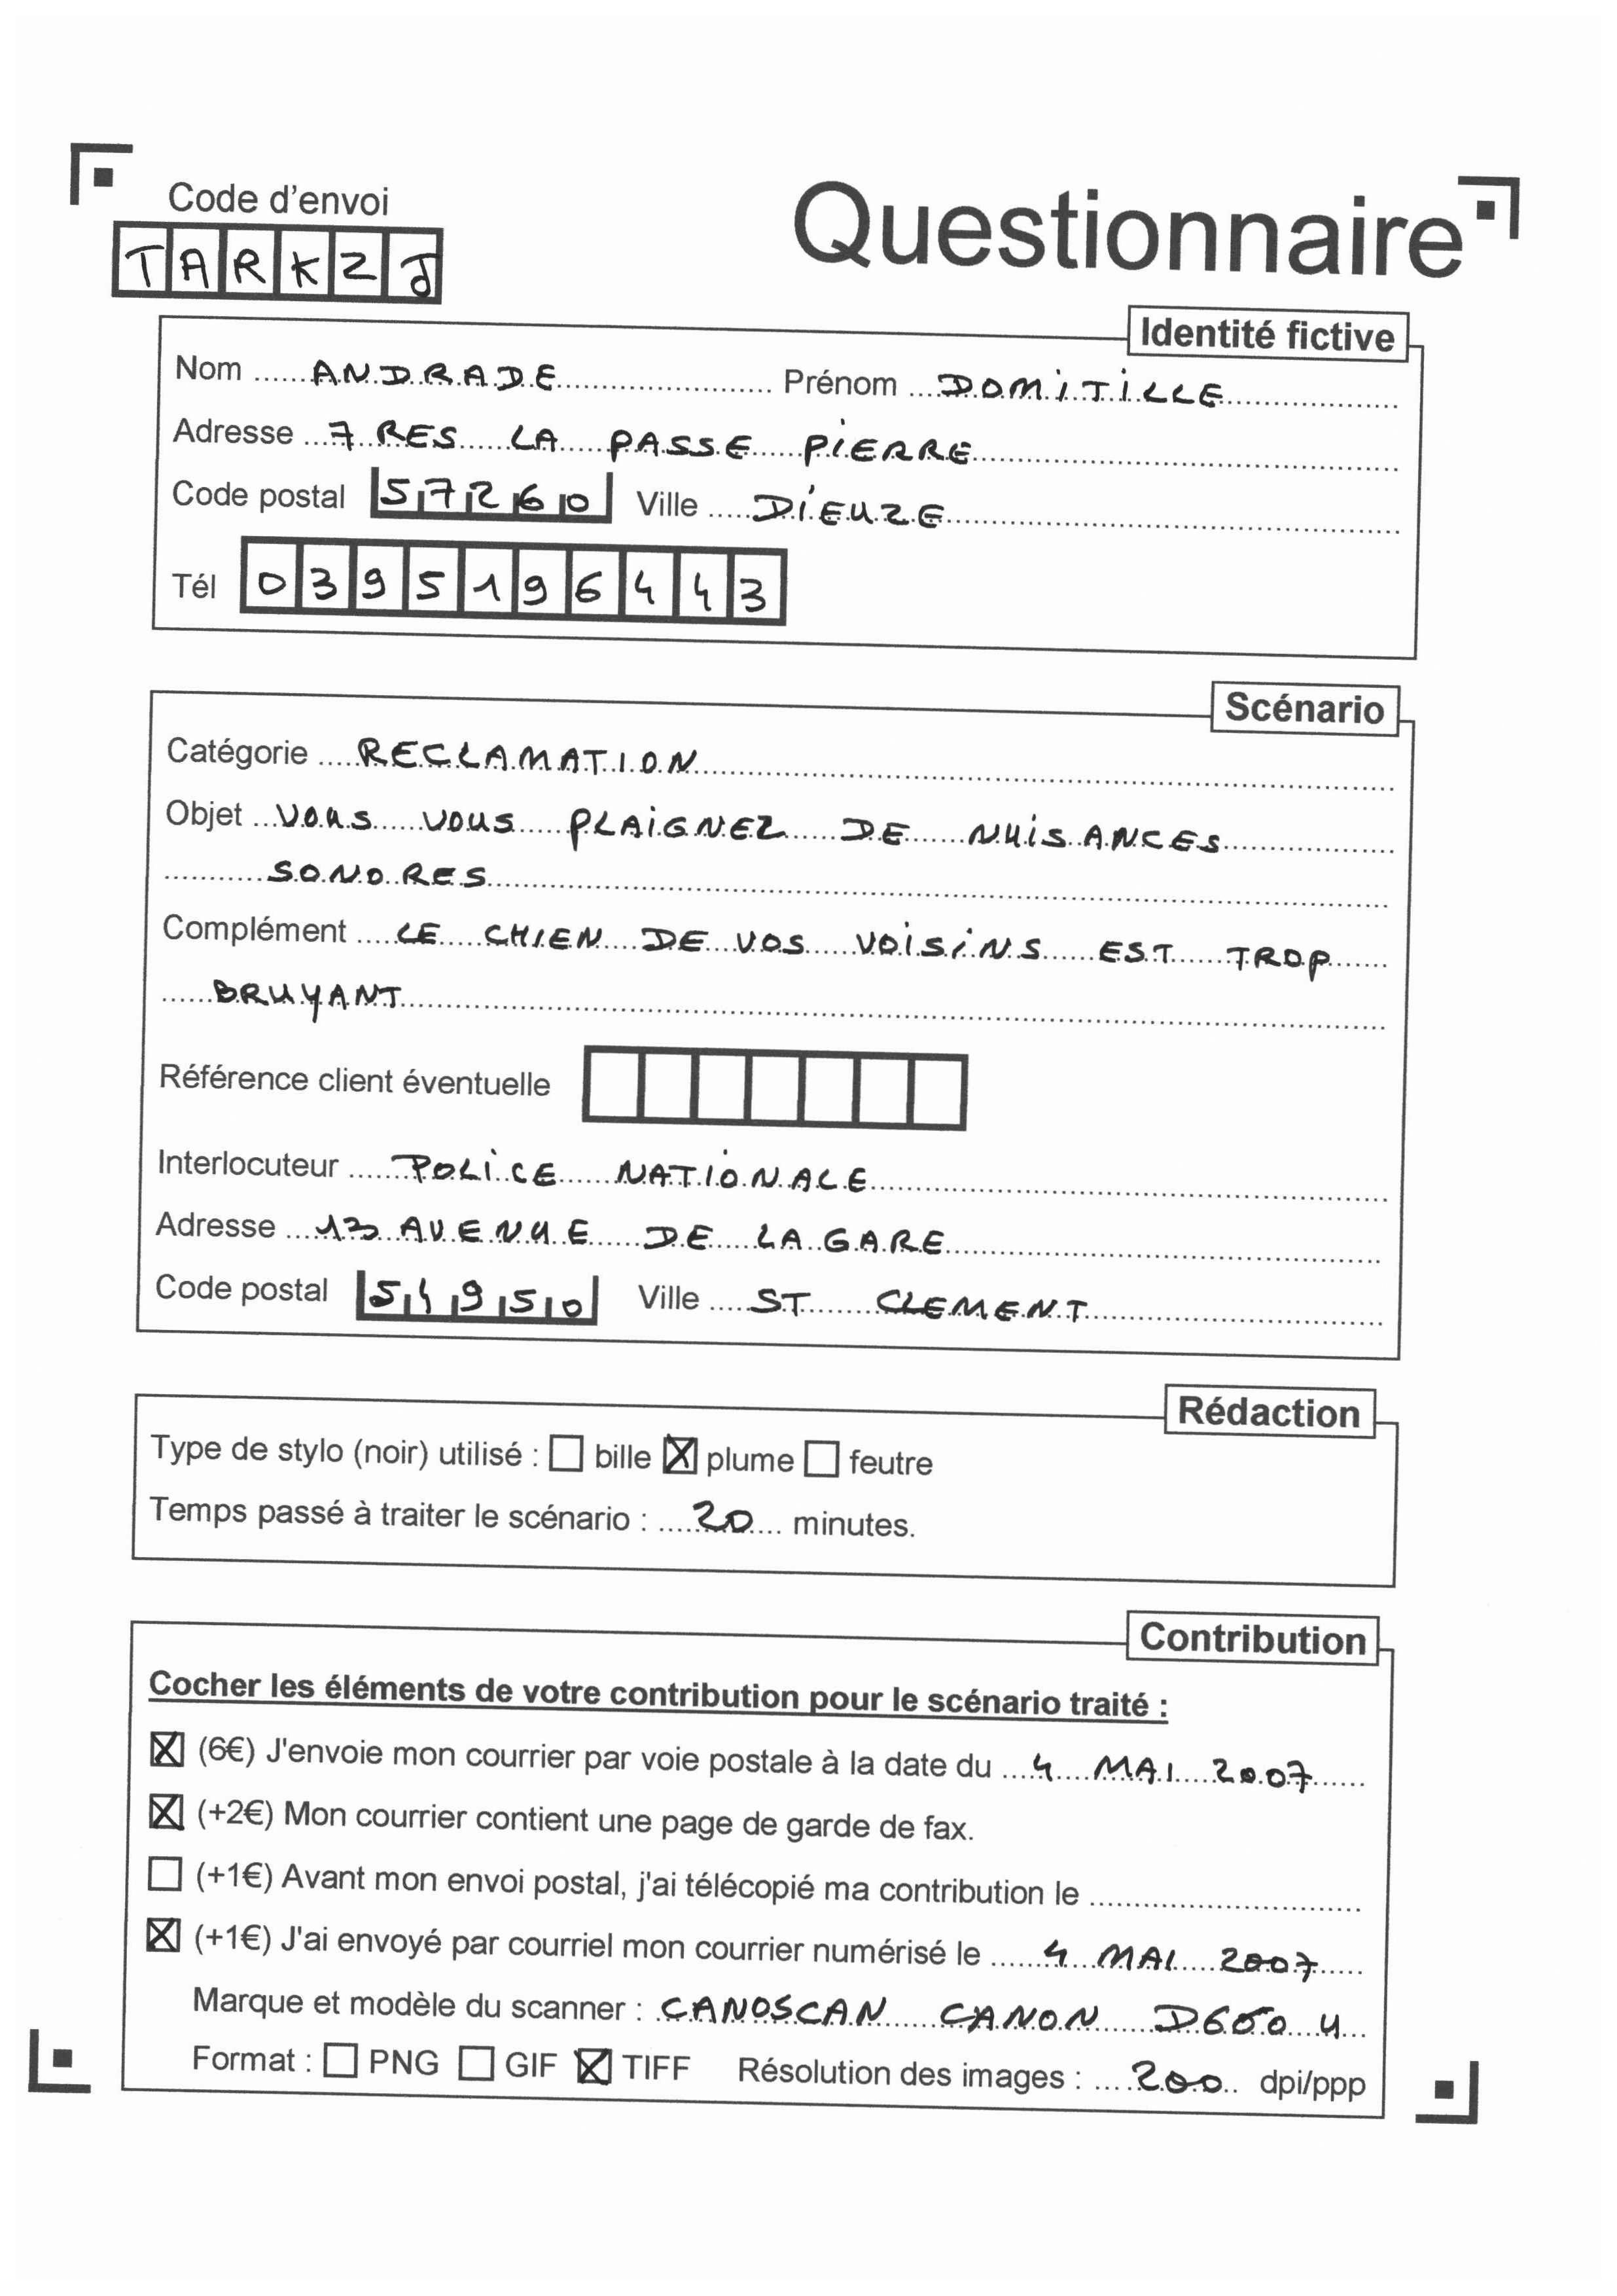 Code d'envoi
TARKZJ
Questionnaire
Identité fictive
Nom ANDRADE Prénom DOMITILLE
Adresse 7 RES LA PASSE PIERRE
Code postal 57260 Ville DIEUZE
Tél 0395196443
Scénario
Catégorie RECLAMATION
Objet VOUS VOUS PLAIGNEZ DE NUISANCES
SONORES
Complément LE CHIEN DE VOS VOISINS EST TROP
BRUYANT
Référence client éventuelle
Interlocuteur POLICE NATIONALE
Adresse 13 AVENUE DE LA GARE
Code postal 54950 Ville ST CLEMENT
Rédaction
Type de stylo (noir) utilisé : ☐ bille ☒ plume ☐ feutre
Temps passé à traiter le scénario : 20 minutes.
Contribution
Cocher les éléments de votre contribution pour le scénario traité :
☒ (6€) J'envoie mon courrier par voie postale à la date du 4 MAI 2007
☒ (+2€) Mon courrier contient une page de garde de fax.
☐ (+1€) Avant mon envoi postal, j'ai télécopié ma contribution le
☒ (+1€) J'ai envoyé par courriel mon courrier numérisé le 4 MAI 2007
Marque et modèle du scanner : CANOSCAN CANON D660 U
Format : ☐ PNG ☐ GIF ☒ TIFF Résolution des images : 200 dpi/ppp